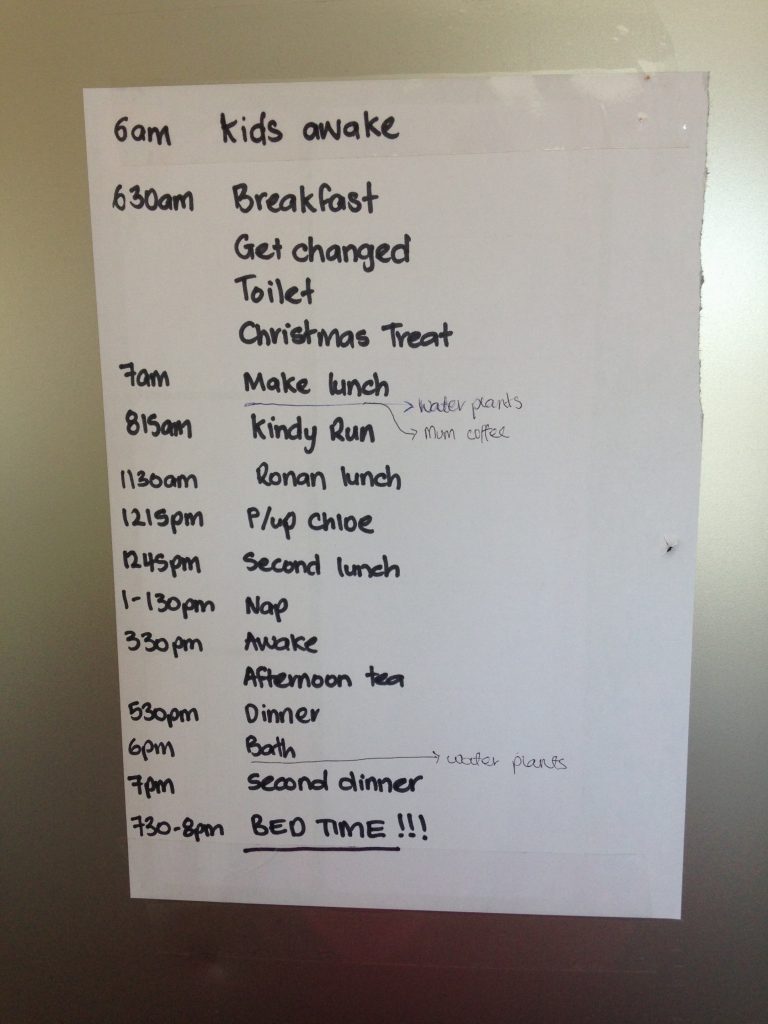 6am kids awake
630am Breakfast
Get changed
Toilet
Christmas Treat
7am Make lunch
→ water plants
815am Kindy Run → Mum coffee
1130am Ronan lunch
1215pm P/up Chloe
1245pm Second lunch
1-130pm Nap
330pm Awake
Afternoon tea
530pm Dinner
6pm Bath → water plants
7pm Second dinner
730-8pm BED TIME !!!